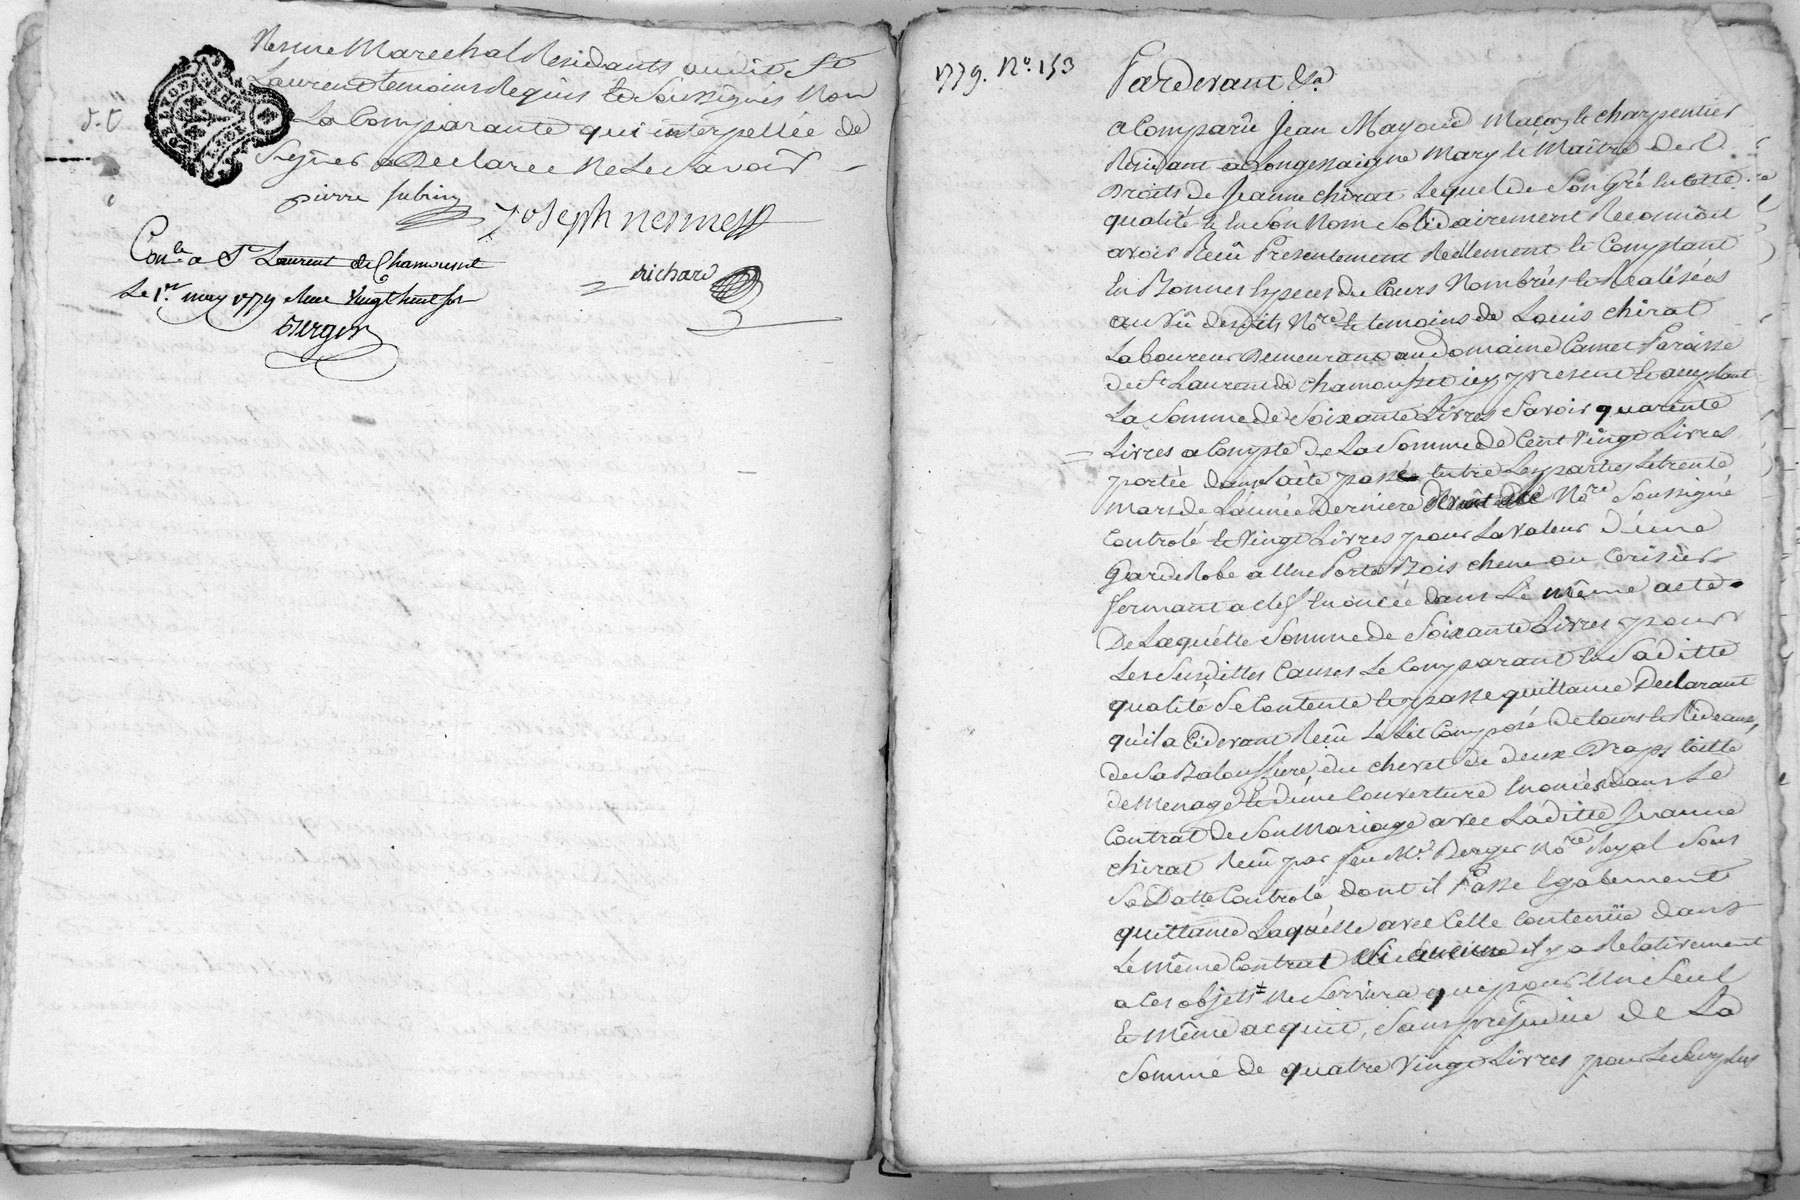 Nesme Marechal Residants audit St
Laurent temoins Requis Et Soussignés Non
La Comparante qui interpellée de
Signer a Declaree Ne Le Savoir
pierre Subrin
Joseph nesme
richard
Conlé a St Laurent de Chamousset
Le 1er may 1779 Reçu Vingt huit sols
Berger
1779. No. 153
Pardevant &a
a Comparû Jean Mayoud Maçon et charpentier
Residant a Longessaigne Mary et Maître des
Droits de Jeanne chirat Lequel de Son Gré En cette
qualité et En Son Nom Solidairement Reconnoit
avoir Reçû Presentement Reélement et Comptant
En Bonnes Especes du Cours Nombrées et Realisées
au Vû desdits Nore et temoins de Louis chirat
Laboureur Demeurant au domaine Camet Paroisse
de St Laurent de chamousset icy present et acceptant
La Somme de Soixante Livres Savoir quarente
Livres a Compte de La Somme de Cent Vingt Livres
portée dans L'acte passé Entre Les parties Le trente
Mars de L'année Derniere Nore Soussigné
Controlé et Vingt Livres pour La Valeur d'une
Garde Robe a Une Porte Bois chene ou Cerisier
fermant a clef Enoncée dans Le même acte
De Laquelle Somme de Soixante Livres pour
Les Susdittes Causes Le Comparant En Saditte
qualité Se Contente Et passe quittance Declarant
qu'il a Cidevant Reçû Le Lit Composé De tours et Rideaux,
de La Baloussiere, du chevet de deux Draps toille
de Menage Et d'une Couverture Enoncés dans Le
Contrat de Son Mariage avec Laditte Jeanne
chirat Reçû par feu Me Berger Nore Royal Sous
Sa Datte Controlé, dont il Passe Egalement
quittance Laquelle avec Celle Contenüe dans
Le même Contrat Si aucune il y a Relativement
a Ces objets Ne Servira que pour Un Seul
Et Même acquit, Sans prejudice de La
Somme de quatre Vingt Livres pour Le Surplus